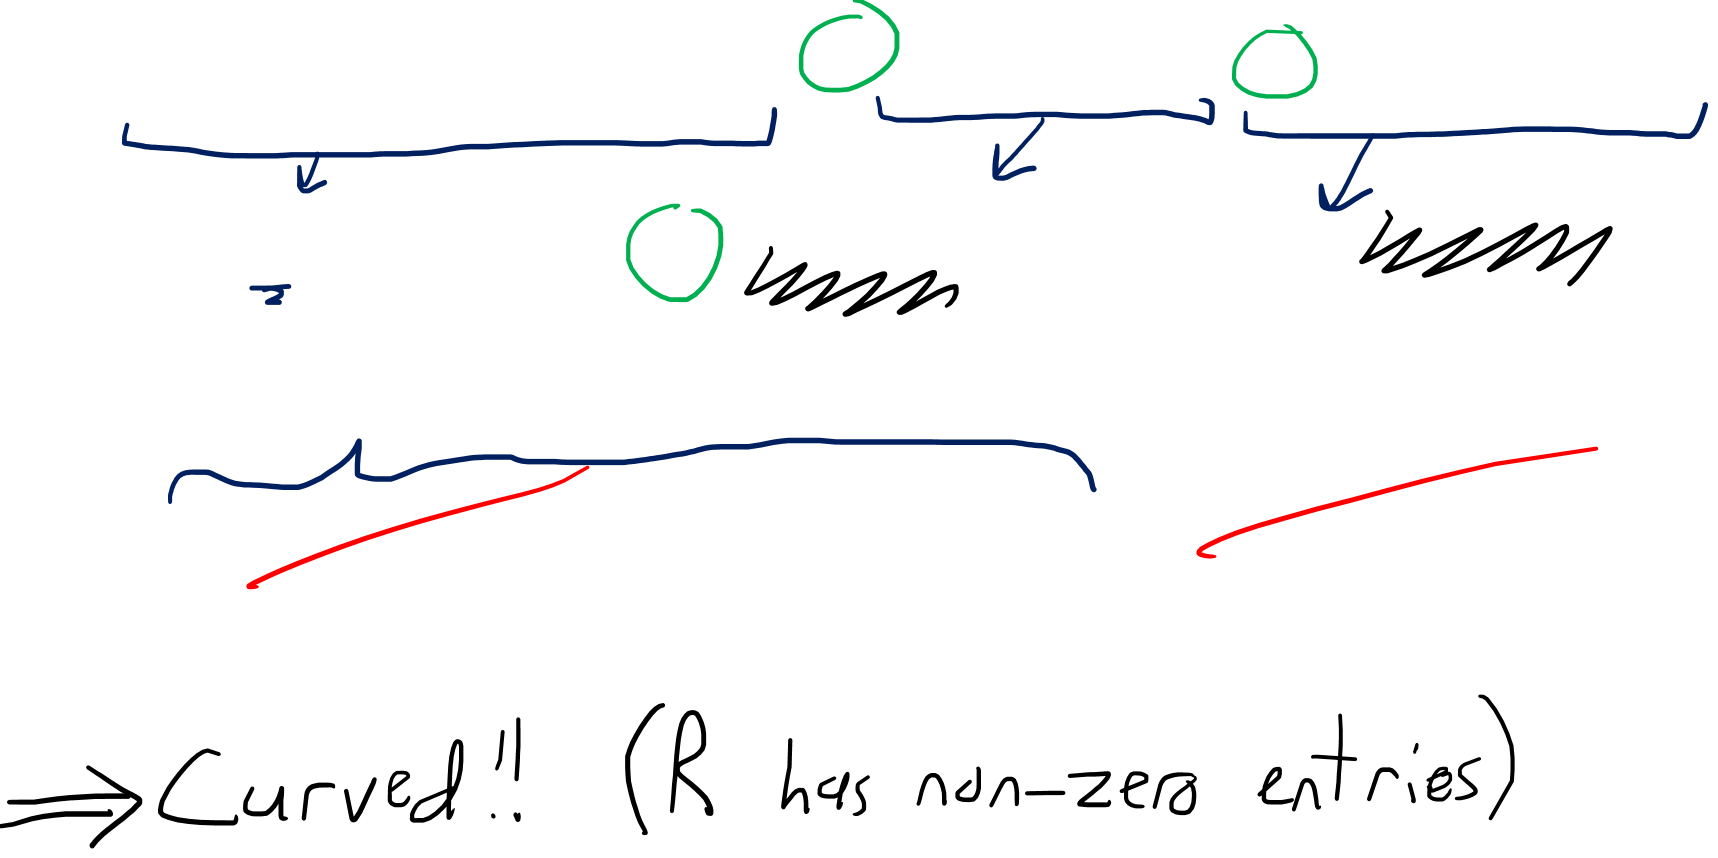 ⇒ Curved!! (R has non-zero entries)